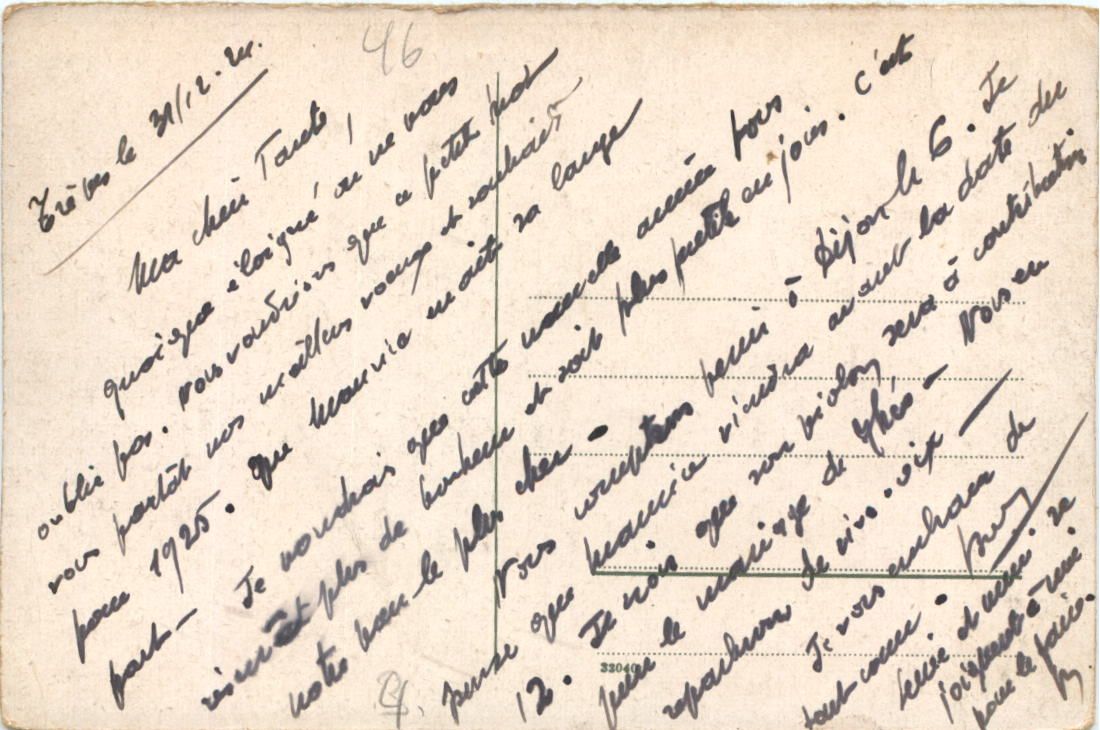 46
Trèves le 31/12.24.
Ma chère Tante,
quoique éloigné on ne vous
oublie pas. Nous voudrions que ce petit mot
vous portât nos meilleurs voeux et souhaits
pour 1925. Que Maurice mette sa longue
part — Je voudrais que cette nouvelle année pour
plus de bonheur et soit plus petite en joies. C'est
notre voeu le plus cher —
Nous comptons venir à Dijon le 6. Je
pense que Maurice viendra avant la date du
12. Je crois que son violon sera à contribution
pour le mariage de Ghés — Nous en
reparlerons de vive voix —
Je vous embrasse de
tout coeur.
et Mimi se
joignent à moi
pour le faire.
33040